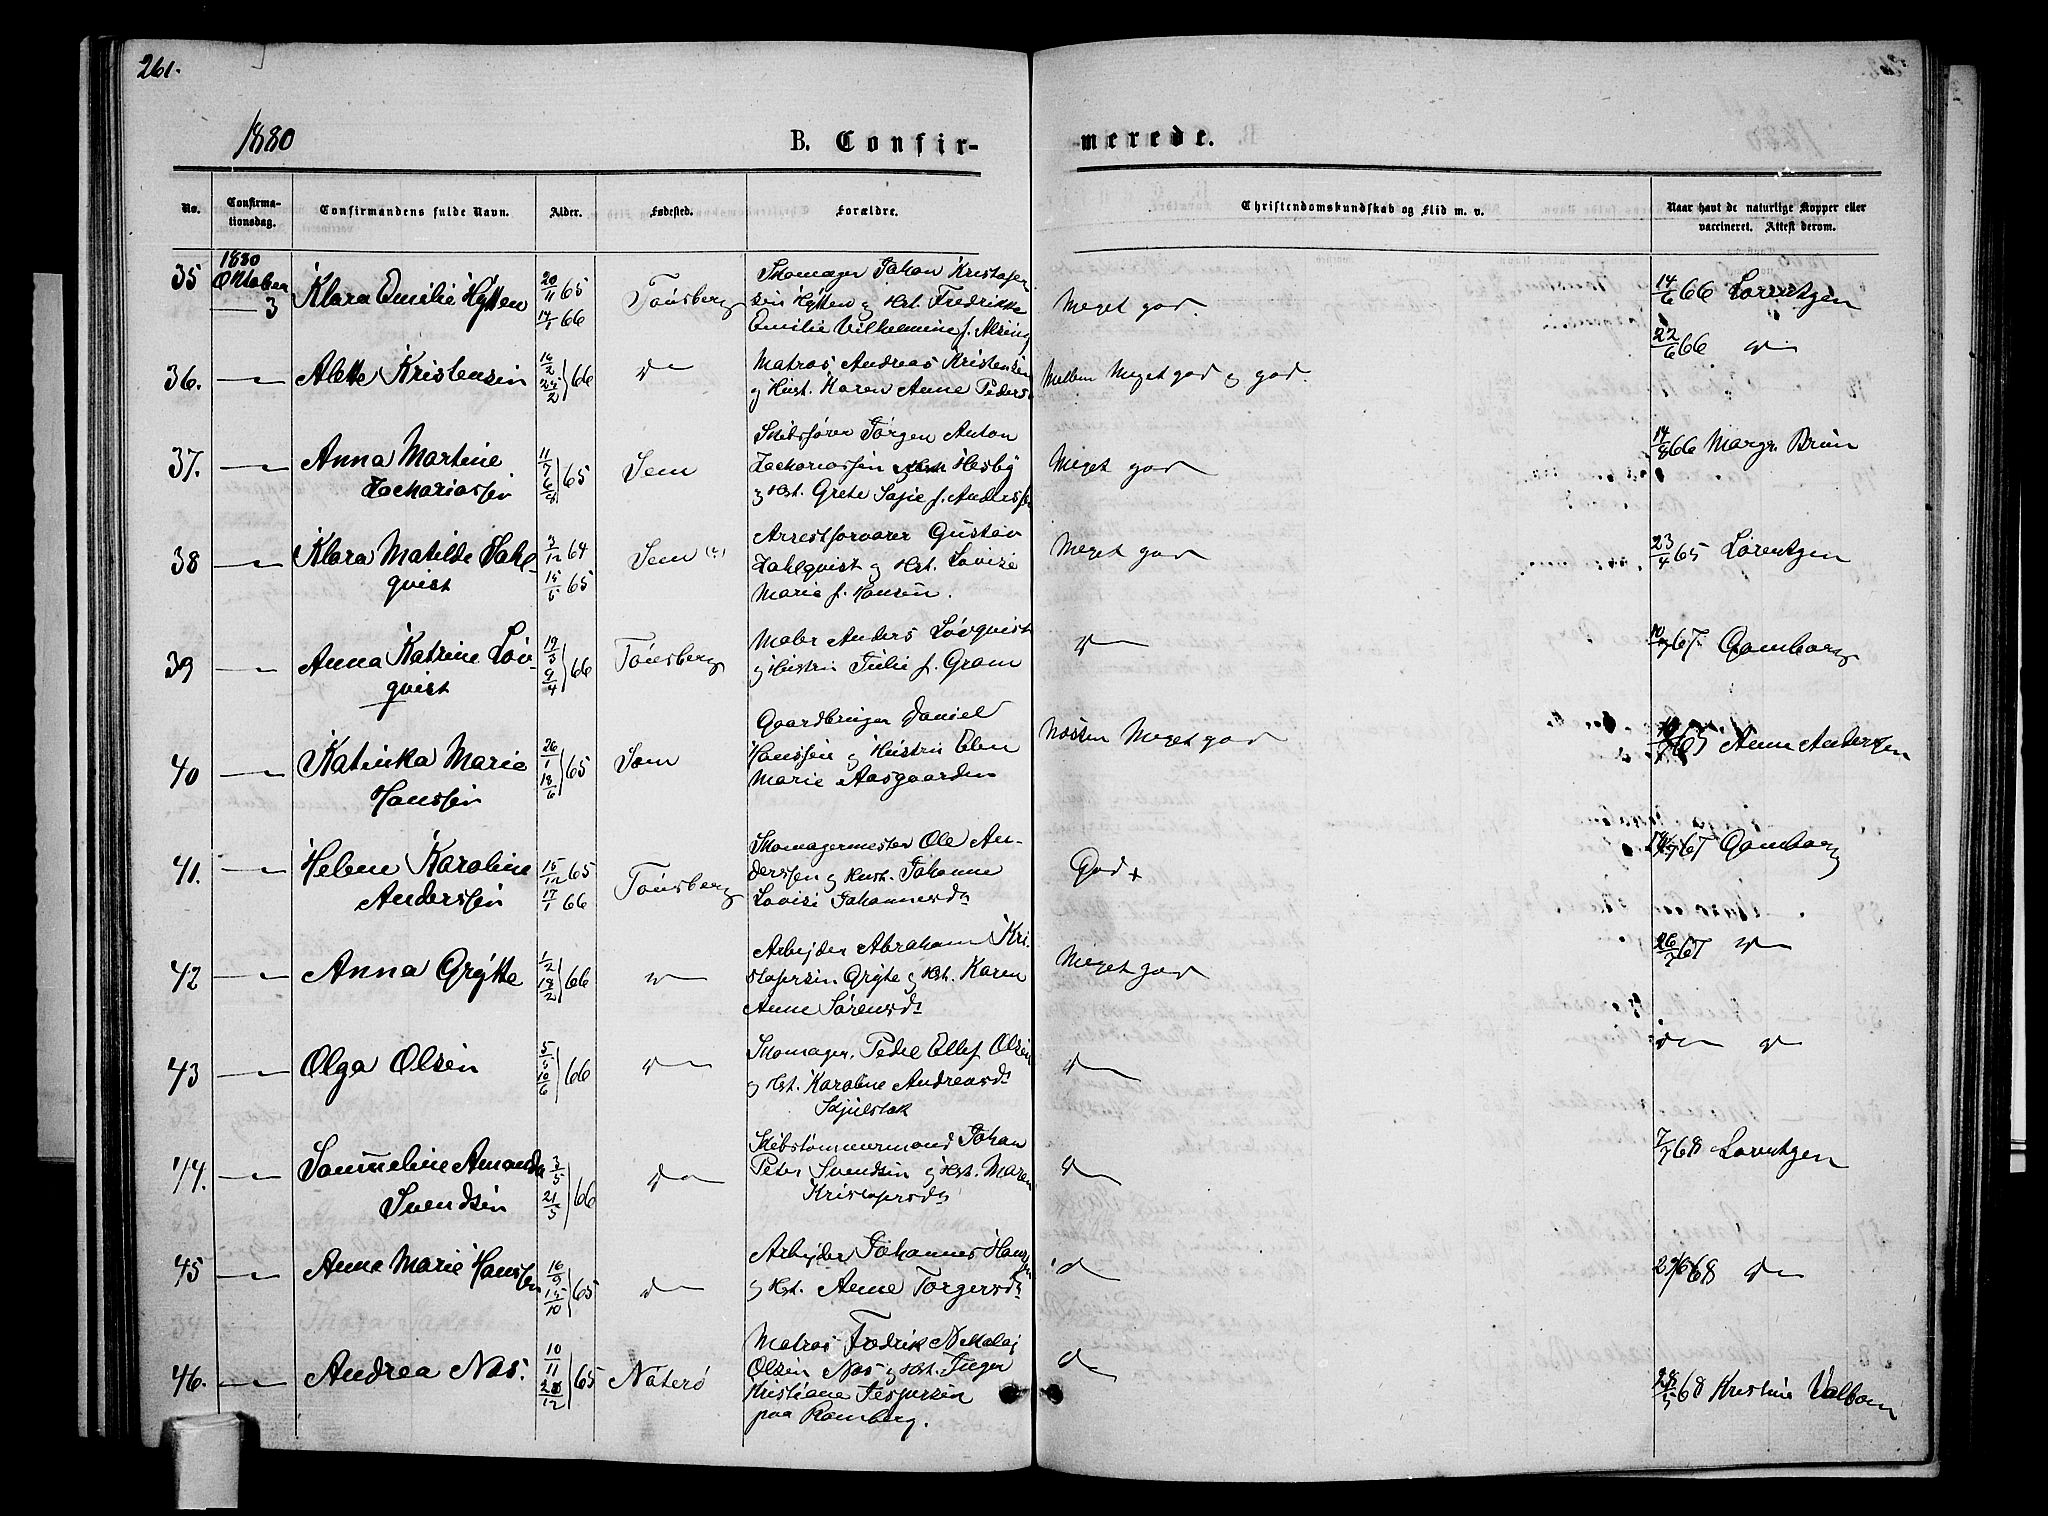 261.
1880
B. Confir-
merede.
No.
Confirma-
tionsdag.
Confirmandens fulde Navn.
Alder.
Fødested.
Forældre.
Christendomskundskab og Flid m. v.
Naar havt de naturlige Kopper eller
vaccineret. Attest derom.
35
1880
Oktober
3
Klara Emilie Hytten
20/11 65
14/1 66
Tønsberg
Skomager Johan Kristofer
sen Hytten og Hst. Fredrikke
Emilie Vilhelmine f.
Meget god.
14/6 66 Lorentzen
36.
Alette Kristensen
16/2
66
Matros Andreas Kristensen
og Hust. Karen Anne Peders
Mellem Meget god og god.
22/6 66
37.
Anna Martine
Zachariassen
11/7
65
Sem
Skibsfører Jørgen Anton
Zachariassen Hesby
og Hst. Grete Sofie f. Anderssen
Meget god
14/8 66 Margr. Brun
38
Klara Matilde Dahl-
qvist
3/12 64
15/5 65
Sem
Arrestforvarer Gustav
Dahlqvist og Hst. Lovise
Marie f. Hansen.
Meget god
23/4 65 Lorentzen
39
Anna Katrine Löv-
qvist
19/3
9/4
66
Tønsberg
Maler Anders Lövqvist
og Hustru Julie f. Gram
67 Gamborg
40
Katinka Marie
Hanssen
26/1
18/6
65
Sem
Gaardbruger Daniel
Hanssen og Hustru Elen
Marie Aasgaarden
Næsten Meget god
65 Anne Andersen
41.
Helene Karoline
Anderssen
15/12 65
17/1 66
Tønsberg
Skomagermester Ole An-
derssen og Hust. Johanne
Lovise Johannesd.
God +
67 Gamborg
42
Anna Gryte
1/2
18/2
66
Arbejder Abraham Kri-
stofersen Gryte og Hst. Karen
Anne Sörensd.
Meget god
26/7 67
43
Olga Olsen
5/5
10/6
66
Skomager Peder Ellef Olsen
og Hst. Karoline Andreasd.
44.
Sammeline Amanda
Svendsen
3/5
21/5
66
Skibstømmermand Johan
Peter Svendsen og Hst. Maren
Kristofersd.
7/7 68 Lorentzen
45
Anne Marie Hanssen
16/9
15/10
65
Arbejder Johannes Hanssen
og Hst. Anne Torgersd.
68
46.
Andrea Nes.
10/11
65
Nøterø
Matros Fredrik Nikolai
Olsen Nes og Hst. Inger
Kristiane Jespersen
paa Ramberg.
28/5 68 Kristine Valbom